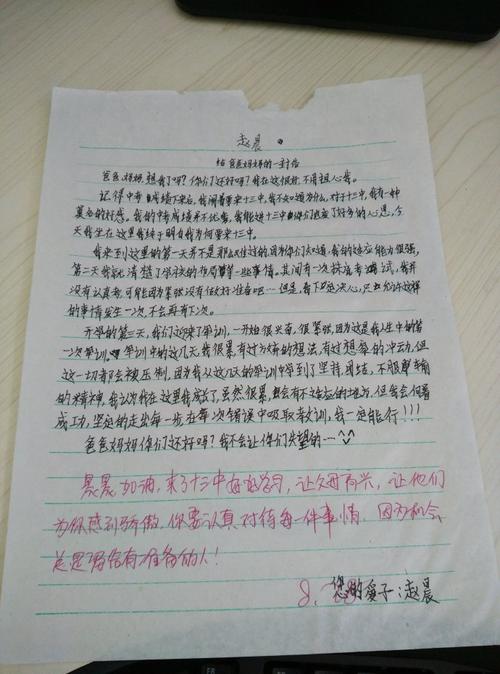 赵晨
给爸爸妈妈的一封信
爸爸,妈妈,想我了吗?你们还好吗?我在这很好,不用担心我。
记得中考成绩下来后,我闹着要来十三中,我不知道为什么,对于十三中,我有一种
莫名的好感。我的中考成绩并不优秀,我能进十三中你们也废了好多的心思,今
天我坐在这里我终于明白我为何要来十三中。
我来到这里的第一天并不是那么记住过的,因为你们知道,我的适应能力很强,
第二天我就清楚了学校的布局等一些事情。其间有一次摸底考试,我并
没有认真考,可能因为紧张没有做好准备吧…但是,我下定决心,只允许这样
的事情发生一次,不会再有下次。
开学的第三天,我们迎来了军训,一开始很兴奋,很紧张,因为这是我人生中的第
一次军训,军训中的这几天,我很累,有过放弃的想法,有过想哭的冲动,但
这一切都会被压制,因为我从这几天的军训中学到了坚持,团结,不服输
的精神,我认为我在这里成长了,虽然很累,也会有不适应的地方,但我会向着
成功,坚定的走出每一步,在每次错误中吸取教训,我一定能行!!!
爸爸妈妈你们还好吗?我不会让你们失望的…
晨晨加油,来了十三中好好学习,让父母高兴,让他们
为你感到骄傲。你要认真对待每一件事情,因为机会
总是留给有准备的人!
您的爱子:赵晨